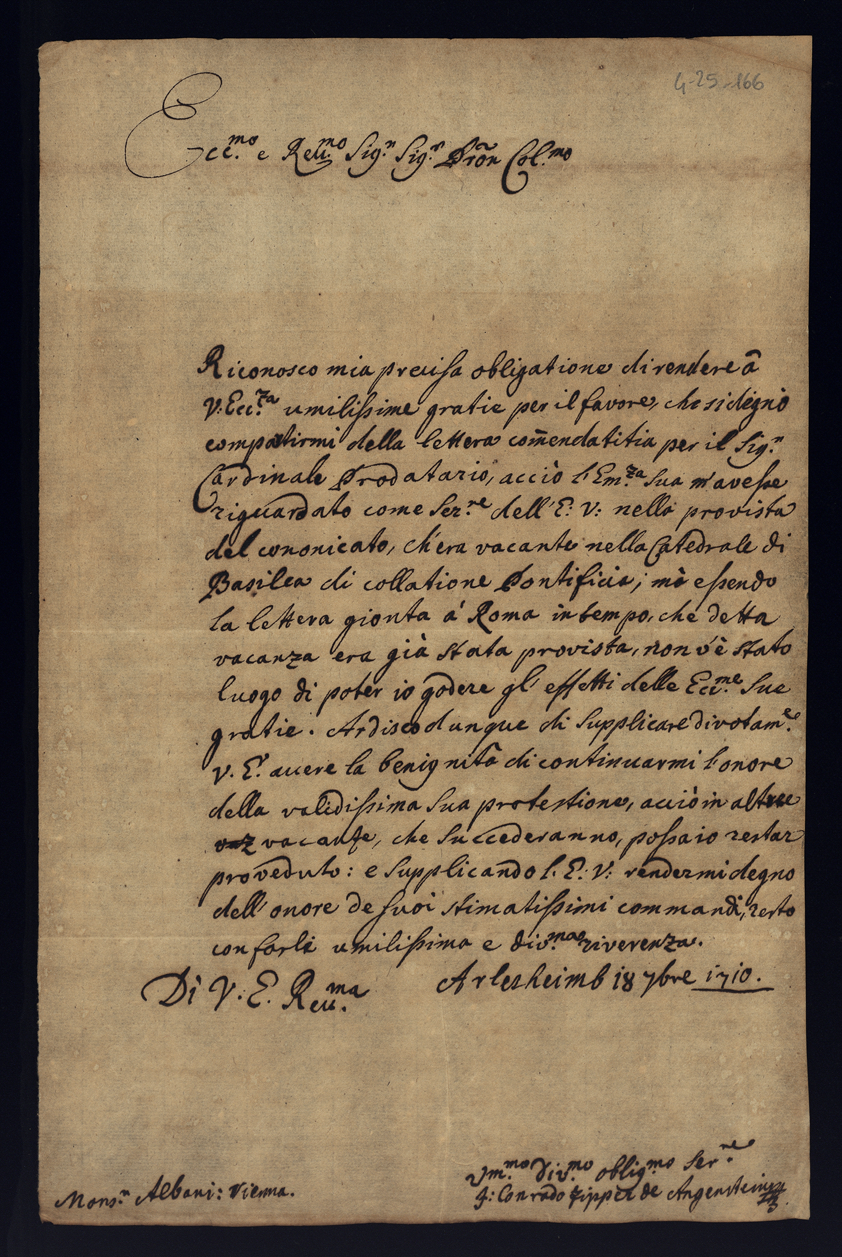 4-25-166
Ecc.mo e Reu.mo Sig.r Sig.r Prõn Col.mo
Riconosco mia precisa obligatione di rendere à
V. Ecc.za umilissime gratie per il favore, che si degnò
compatirmi della lettera com̃endatitia per il Sig.r
Cardinale Prodatario, acciò l'Em.za Sua m'avesse
riguardato come Ser.re dell'E. V: nella provista
del cononicato, ch'era vacante nella Catedrale di
Basilea di collatione Pontificia; mà essendo
la lettera gionta a' Roma in tempo, che detta
vacanza era già stata provista, non v'è stato
luogo di poter io godere gl'effetti delle Ecc.me Sue
gratie. Ardisco dunque di supplicare divotam.e
V. E. avere la benignità di continuarmi l'onore
della validissima sua protestione, acciò in altre
vacanze, che succederanno, possa io restar
proveduto: e supplicando l'E: V: rendermi degno
dell'onore de suoi stimatissimi commandi, resto
con farle umilissima e div.ma riverenza.
Di V. E. Reu.ma Arlesheimb 18 7bre 1710.
Um.mo Div.mo oblig.mo Ser.re
Mons.r Albani: Vienna. J: Conrado Zipper de Angenstein